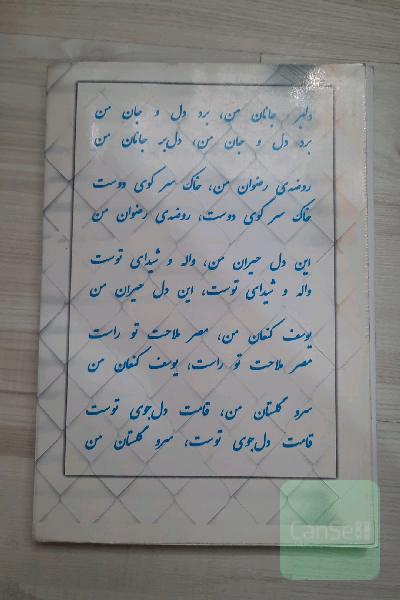 دلبر جانان من، برد دل و جان من
برد دل و جان من، دل‌بر جانان من
روضه‌ی رضوان من، خاک سر کوی دوست
خاک سر کوی دوست، روضه‌ی رضوان من
این دل حیران من، واله و شیدای توست
واله و شیدای توست، این دل حیران من
یوسف کنعان من، مصر ملاحت تو راست
مصر ملاحت تو راست، یوسف کنعان من
سرو گلستان من، قامت دل‌جوی توست
قامت دل‌جوی توست، سرو گلستان من
CanSell